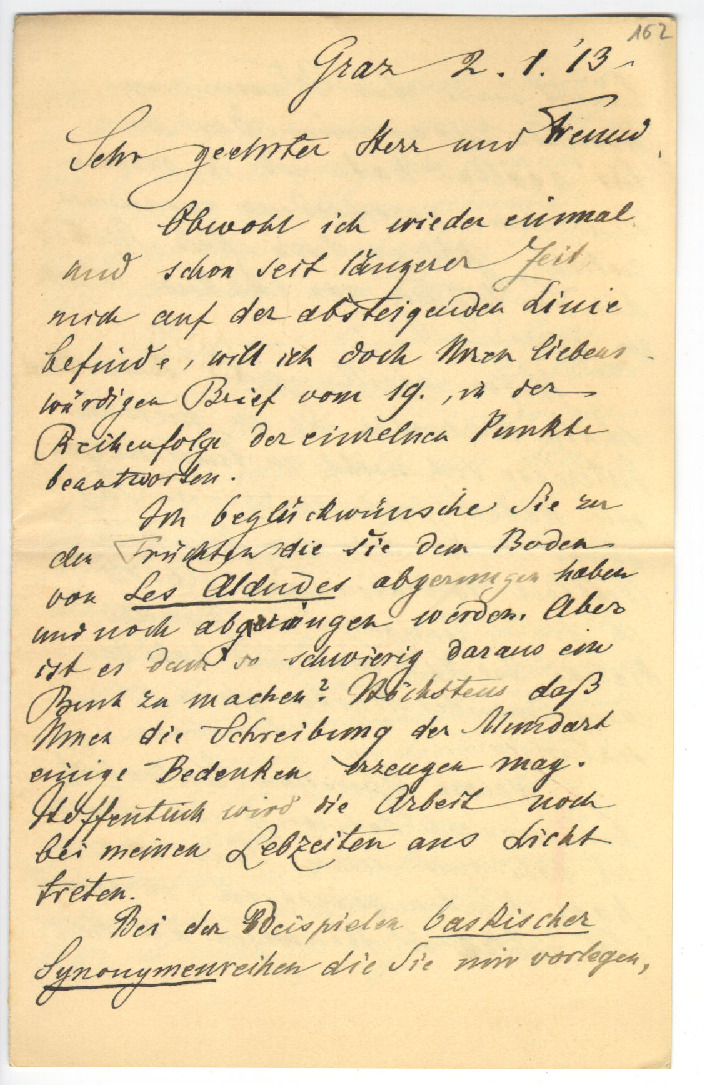 162
Graz 2. 1. '13
Sehr geehrter Herr und Freund,
Obwohl ich wieder einmal
und schon seit längerer Zeit
mich auf der absteigenden Linie
befinde, will ich doch Ihren liebens-
würdigen Brief vom 19., in der
Reihenfolge der einzelnen Punkte
beantworten.
Ich beglückwünsche Sie zu
den Früchten die Sie dem Boden
von Les Aldudes abgerungen haben
und noch abzuringen werden. Aber
ist es denn so schwierig daraus ein
Buch zu machen? Höchstens daß
Ihnen die Schreibung der Mundart
einige Bedenken erzeugen mag.
Hoffentlich wird die Arbeit noch
bei meinen Lebzeiten ans Licht
treten.
Bei den Beispielen baskischer
Synonymenreihen die Sie mir vorlegen,